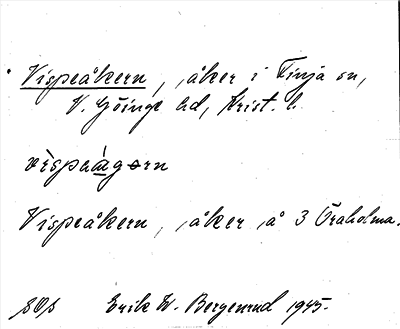 Vispeåkern, åker i Finja sn,
V. Göinge hd, Krist. l.
vèspaàgɘrn
Vispeåkern, åker å 3 Öraholma.
Erik W. Bergenrud 1945.